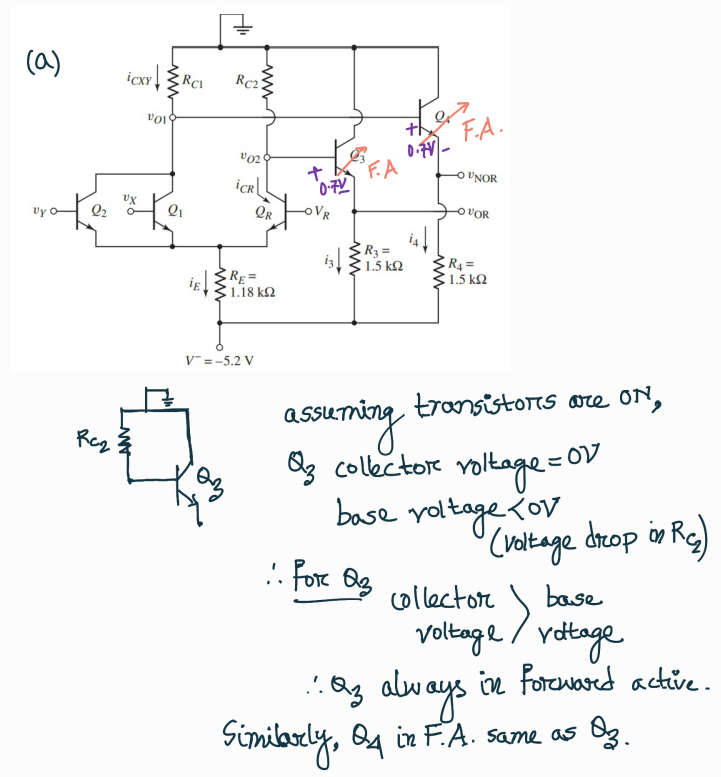 (a)
iCXY
RC1
RC2
vO1
Q4
F.A.
+
0.7V -
vO2
Q3
F.A
+
0.7V
vNOR
vY
Q2
vX
Q1
iCR
QR
VR
vOR
iE
RE =
1.18 kΩ
i3
R3 =
1.5 kΩ
i4
R4 =
1.5 kΩ
V⁻ = −5.2 V
RC2
Q3
assuming transistors are ON,
Q3 collector voltage = 0V
base voltage < 0V
(voltage drop in RC2)
∴ For Q3
collector > base
voltage voltage
∴ Q3 always in forward active.
Similarly, Q4 in F.A. same as Q3.